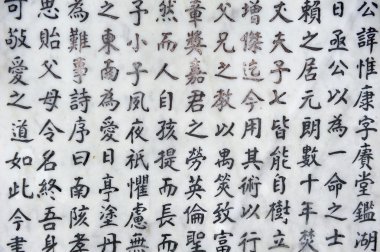 公諱惟康字賡堂鑑湖
日亟公以為一命之士
賴之居元朗數十年焚
丈夫子七皆能自樹立
增傑迄今用其術以行
父兄之教以禺筴致富
童獎嘉君之勞英倫聖
然而人自孩提而長而
子小子夙夜祗懼慮無
之東南為愛日亭塗丹
為難事詩序曰南陔孝
思貽父母令名終吾身
可敬愛之道如此今